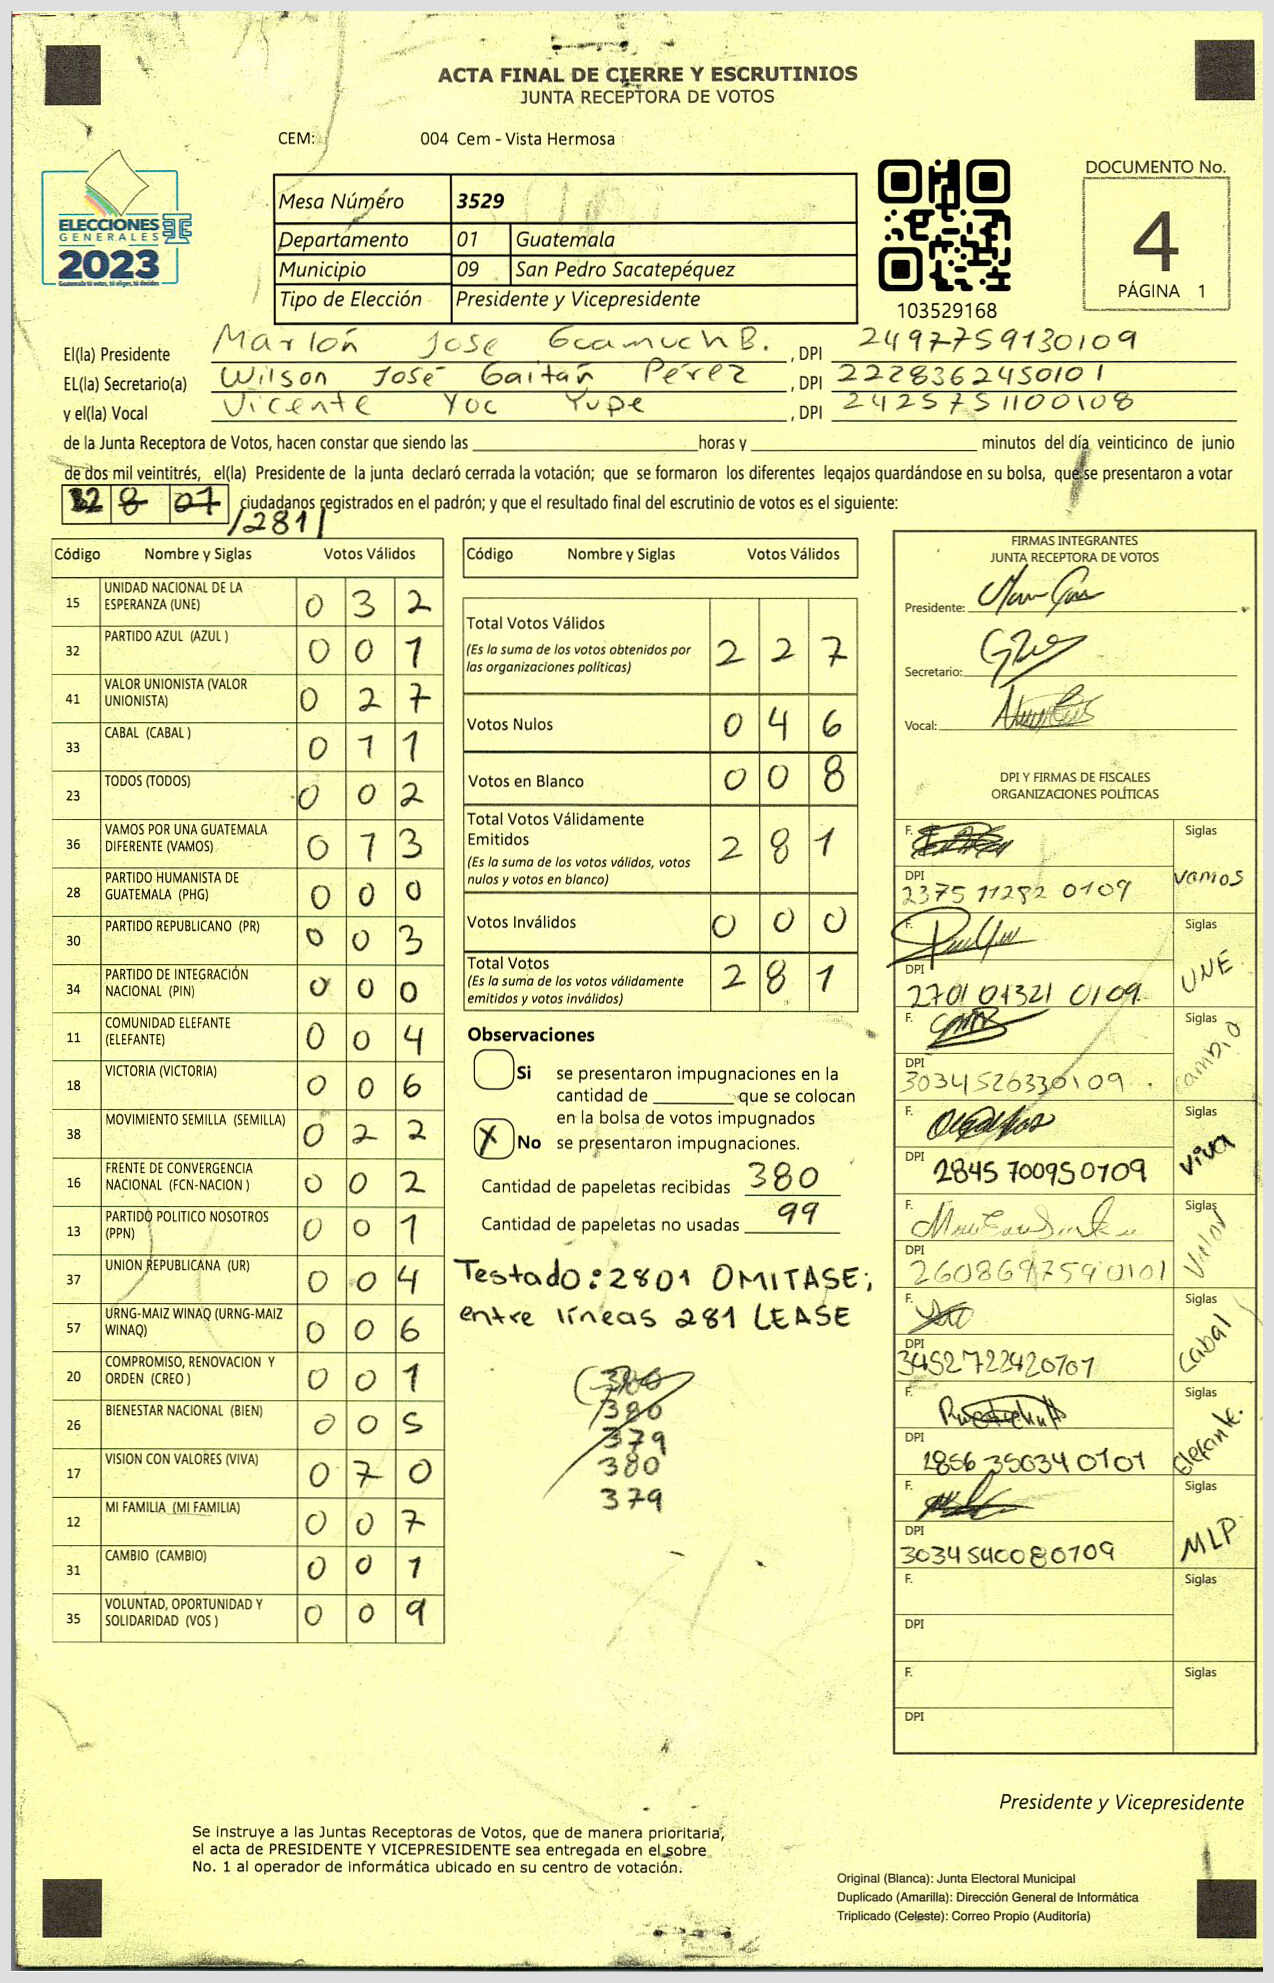 ACTA FINAL DE CIERRE Y ESCRUTINIOS
JUNTA RECEPTORA DE VOTOS
CEM: 004 Cem - Vista Hermosa
ELECCIONES
GENERALES
2023
Guatemala tú votas, tú eliges, tú decides
Mesa Número 3529
Departamento 01 Guatemala
Municipio 09 San Pedro Sacatepéquez
Tipo de Elección Presidente y Vicepresidente
103529168
DOCUMENTO No.
4
PÁGINA 1
El(la) Presidente Marlon José Guamuch B. , DPI 2497759130109
EL(la) Secretario(a) Wilson José Gaitán Pérez , DPI 2228362450101
y el(la) Vocal Vicente Yoc Yupe , DPI 2425751100108
de la Junta Receptora de Votos, hacen constar que siendo las horas y minutos del día veinticinco de junio
de dos mil veintitrés, el(la) Presidente de la junta declaró cerrada la votación; que se formaron los diferentes legajos quardándose en su bolsa, que se presentaron a votar
ciudadanos registrados en el padrón; y que el resultado final del escrutinio de votos es el siguiente:
/281/
Código Nombre y Siglas Votos Válidos
15 UNIDAD NACIONAL DE LA ESPERANZA (UNE) 0 3 2
32 PARTIDO AZUL (AZUL ) 0 0 1
41 VALOR UNIONISTA (VALOR UNIONISTA) 0 2 7
33 CABAL (CABAL ) 0 1 1
23 TODOS (TODOS) 0 0 2
36 VAMOS POR UNA GUATEMALA DIFERENTE (VAMOS) 0 1 3
28 PARTIDO HUMANISTA DE GUATEMALA (PHG) 0 0 0
30 PARTIDO REPUBLICANO (PR) 0 0 3
34 PARTIDO DE INTEGRACIÓN NACIONAL (PIN) 0 0 0
11 COMUNIDAD ELEFANTE (ELEFANTE) 0 0 4
18 VICTORIA (VICTORIA) 0 0 6
38 MOVIMIENTO SEMILLA (SEMILLA) 0 2 2
16 FRENTE DE CONVERGENCIA NACIONAL (FCN-NACION ) 0 0 2
13 PARTIDO POLITICO NOSOTROS (PPN) 0 0 1
37 UNION REPUBLICANA (UR) 0 0 4
57 URNG-MAIZ WINAQ (URNG-MAIZ WINAQ) 0 0 6
20 COMPROMISO, RENOVACION Y ORDEN (CREO ) 0 0 1
26 BIENESTAR NACIONAL (BIEN) 0 0 5
17 VISION CON VALORES (VIVA) 0 7 0
12 MI FAMILIA (MI FAMILIA) 0 0 7
31 CAMBIO (CAMBIO) 0 0 1
35 VOLUNTAD, OPORTUNIDAD Y SOLIDARIDAD (VOS ) 0 0 9
Código Nombre y Siglas Votos Válidos
Total Votos Válidos 2 2 7
(Es la suma de los votos obtenidos por
las organizaciones políticas)
Votos Nulos 0 4 6
Votos en Blanco 0 0 8
Total Votos Válidamente
Emitidos 2 8 1
(Es la suma de los votos válidos, votos
nulos y votos en blanco)
Votos Inválidos 0 0 0
Total Votos 2 8 1
(Es la suma de los votos válidamente
emitidos y votos inválidos)
Observaciones
Si se presentaron impugnaciones en la
cantidad de que se colocan
en la bolsa de votos impugnados
X No se presentaron impugnaciones.
Cantidad de papeletas recibidas 380
Cantidad de papeletas no usadas 99
Testado: 2801 OMITASE;
entre líneas 281 LEASE
380
380
379
380
379
FIRMAS INTEGRANTES
JUNTA RECEPTORA DE VOTOS
Presidente:
Secretario:
Vocal:
DPI Y FIRMAS DE FISCALES
ORGANIZACIONES POLÍTICAS
F. Siglas
DPI vamos
2375 11282 0109
F. Siglas
DPI UNE
2701 04321 0109
F. Siglas
DPI cambio
3034526330109
F. Siglas
DPI viva
2845700950109
F. Siglas
DPI Valor
2608697590101
F. Siglas
DPI Cabal
3452722420101
F. Siglas
DPI Elefante.
1856350340101
F. Siglas
DPI MLP
3034540080109
F. Siglas
DPI
F. Siglas
DPI
Presidente y Vicepresidente
Se instruye a las Juntas Receptoras de Votos, que de manera prioritaria,
el acta de PRESIDENTE Y VICEPRESIDENTE sea entregada en el sobre
No. 1 al operador de informática ubicado en su centro de votación.
Original (Blanca): Junta Electoral Municipal
Duplicado (Amarilla): Dirección General de Informática
Triplicado (Celeste): Correo Propio (Auditoría)